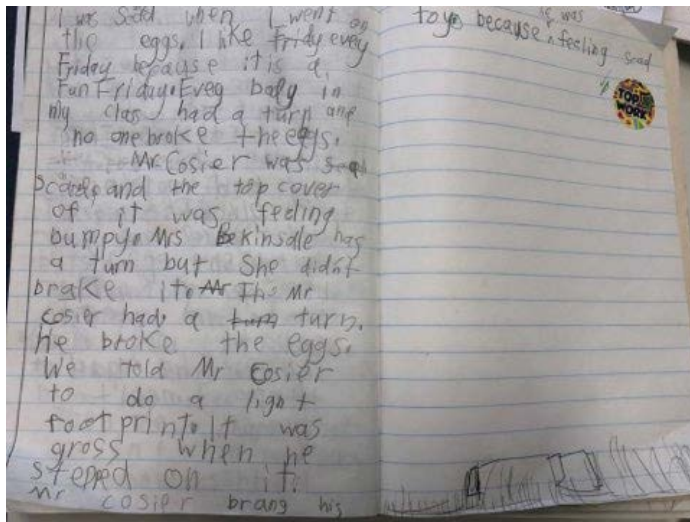 I was Scad when I went on
the eggs. I like Fridy evey
Friday because it is a
Fun Friday. Evey body in
my clas had a turn and
no one broke the eggs.
Mr. Cosier was
Scade, and the top cover
of it was feeling
bumpy. Mrs Bekinsdle has
a turn but She didn't
brake it. Mr The Mr
cosier had a turn turn.
He broke the eggs.
We told Mr Cosier
to do a light
foot print. It was
gross when he
steped on it.
Mr cosier brang his
toye because he was feeling scad
TOP
WORK